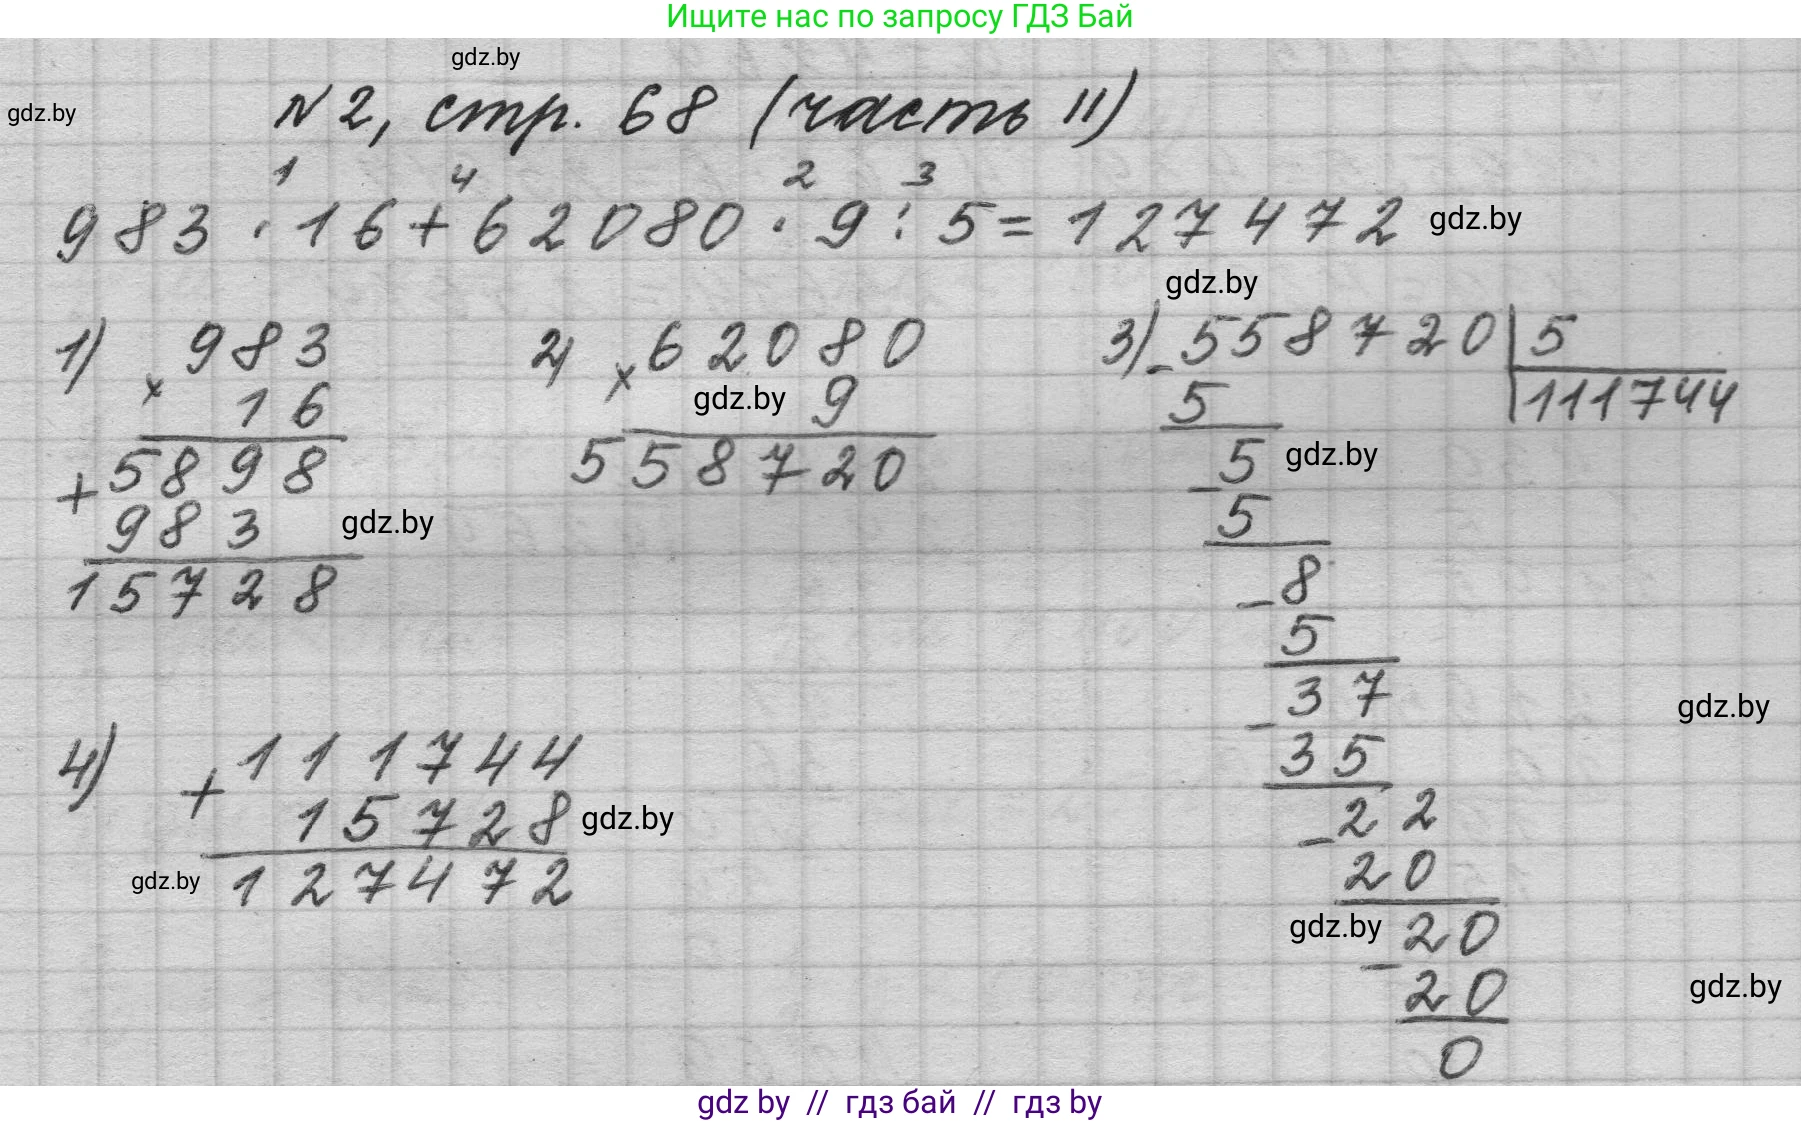 Ищите нас по запросу ГДЗ Бай
gdz.by
gdz.by
N2, стр. 68 (часть II)
1 4 2 3
983 · 16 + 62080 · 9 : 5 = 127472
gdz.by
gdz.by
1) 983
× 16
5898
+ 983
15728
gdz.by
2) 62080
× 9
558720
gdz.by
3) 558720 | 5
111744
- 5
5
- 5
8
- 5
37
- 35
22
- 20
20
- 20
0
gdz.by
gdz.by
gdz.by
gdz.by
4) 111744
+ 15728
127472
gdz.by
gdz.by
gdz by // гдз бай // гдз by